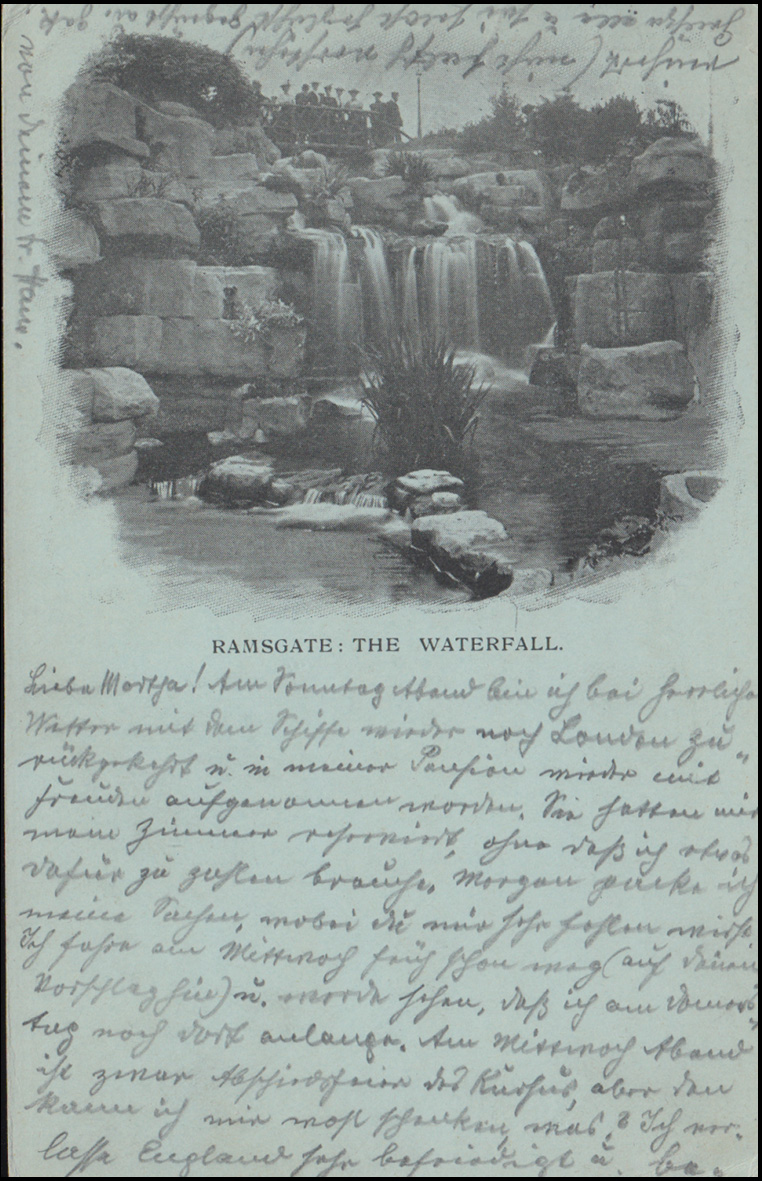 RAMSGATE: THE WATERFALL.
Liebe Martha! Am Sonntag Abend bin ich bei herrliche
Wetter mit dem Schiffe wieder nach London zu
rückgekehrt u. in meiner Pension wieder mit
Freuden aufgenommen worden. Sie hatten mir
mein Zimmer reserviert, ohne daß ich etwas
dafür zu zahlen brauche. Morgen packe ich
meine Sachen, wobei du mir sehr fehlen wirst
Ich fahre am Mittwoch früh schon weg (auf deinen
Vorschlag hin) u. werde sehen, daß ich am Donners
tag noch dort anlange. Am Mittwoch Abend
ist zwar Abschiedsfeier des Kursus, aber den
kann ich mir wohl schenken, was? Ich ver-
lasse England sehr befriedigt u. be-
reichert (nicht falsch verstehen)
Grüße alle u. sei selbst herzlichst gegrüßt u. gek.
von deinem tr. Hans.